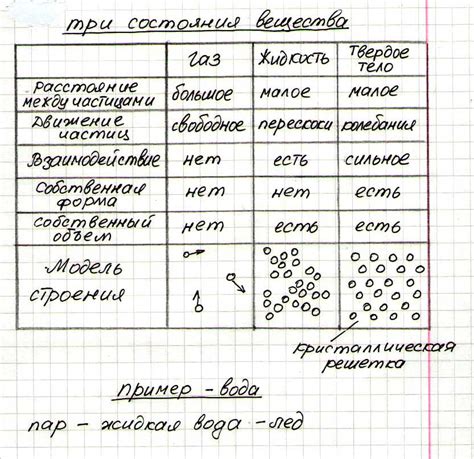 три состояния вещества
газ жидкость Твердое тело
Расстояние между частицами большое малое малое
Движение частиц свободное перескоки колебания
Взаимодействие нет есть сильное
Собственная форма нет нет есть
Собственный объем нет есть есть
Модель строения
кристаллическая решетка
пример - вода
пар - жидкая вода - лед